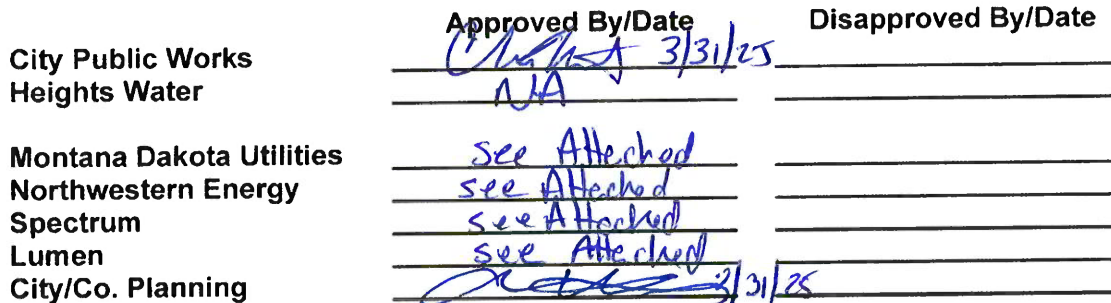 Approved By/Date Disapproved By/Date
City Public Works 3/31/25
Heights Water NA
Montana Dakota Utilities see Attached
Northwestern Energy see Attached
Spectrum see Attached
Lumen see Attached
City/Co. Planning 3/31/25